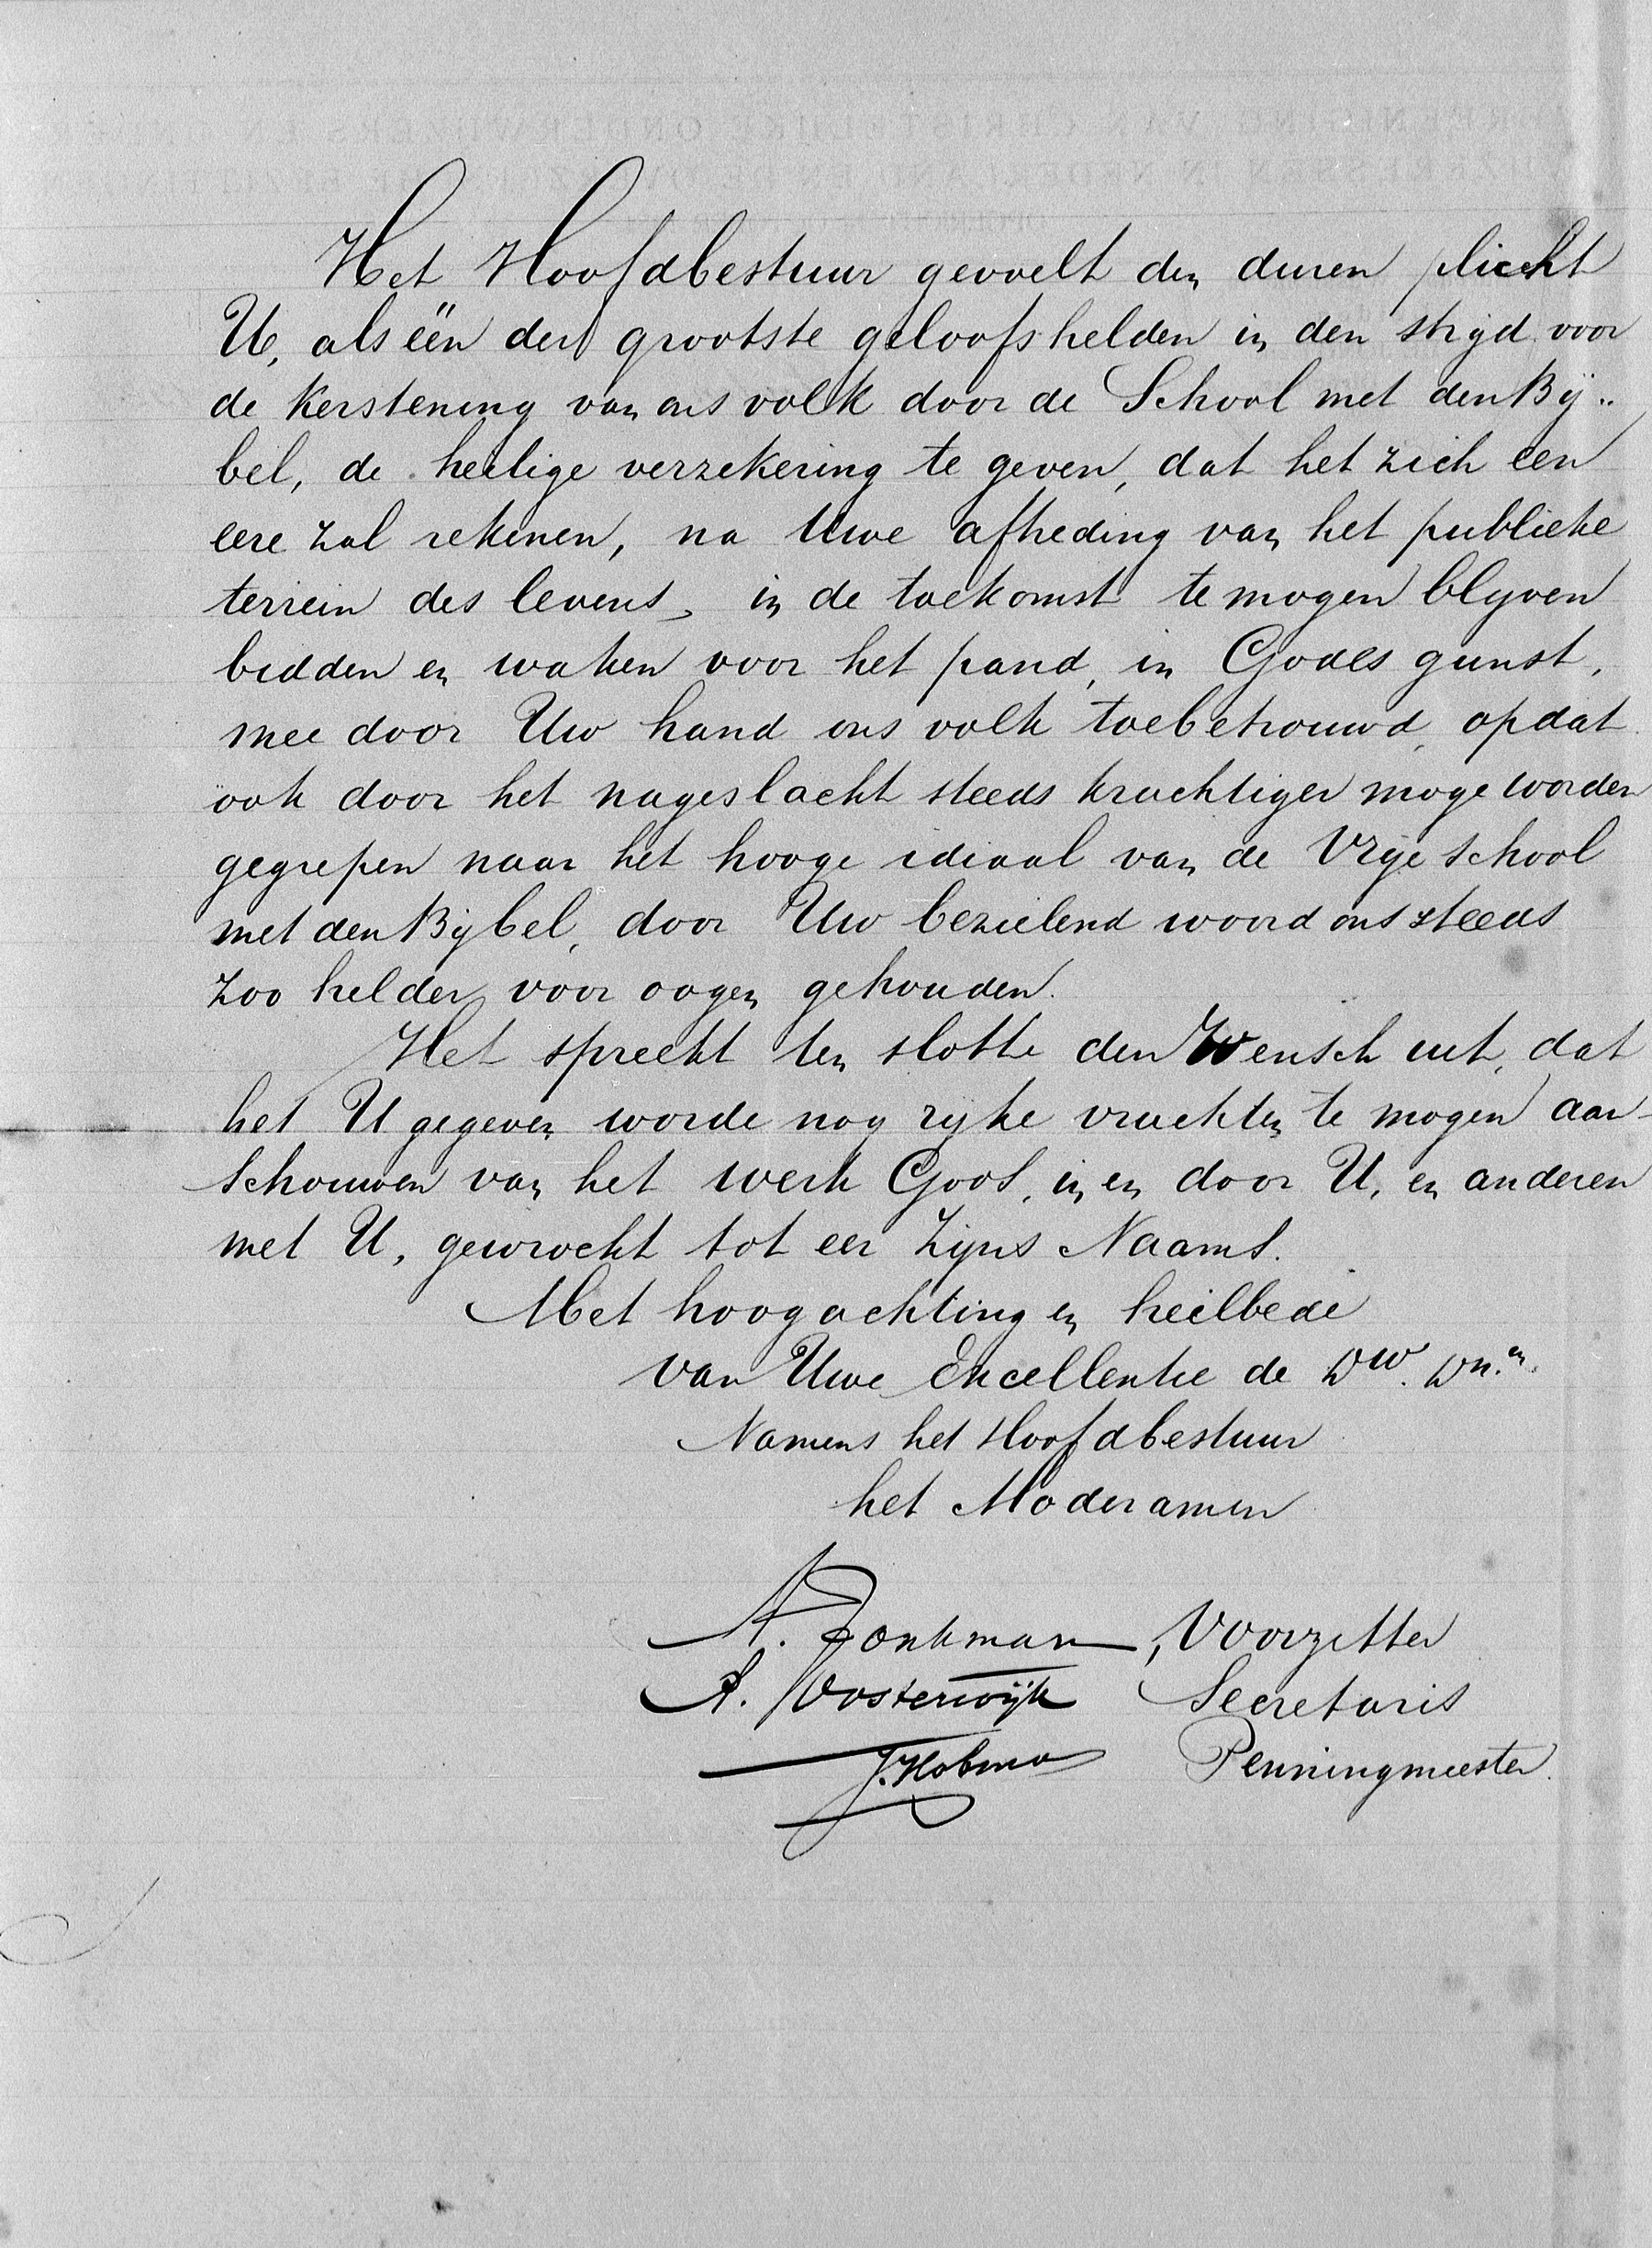 Het Hoofdbestuur gevoelt den duren plicht
U, als één der grootste geloofshelden in den strijd voor
de kerstening van ons volk door de School met den Bij„
bel, de heilige verzekering te geven, dat het zich een
eere zal rekenen, na Uwe aftreding van het publieke
terrein des levens, in de toekomst te mogen blijven
bidden en waken voor het pand, in Gods gunst,
mee door Uw hand ons volk toebetrouwd, opdat
ook door het nageslacht steeds krachtiger moge worden
gegrepen naar het hooge ideaal van de Vrije School
met den Bijbel, door Uw bezielend woord ons steeds
zoo helder voor oogen gehouden.
Het spreekt ten slotte den Wensch uit, dat
het U gegeven worde nog rijke vruchten te mogen aan-
schouwen van het werk Gods, in en door U, en anderen
met U, gewrocht tot eer Zijns Naams.
Met hoogachting en heilbede
van Uwe Excellentie de Dw. Dn.en
Namens het Hoofdbestuur
het Moderamen
A. Jonkman, Voorzitter
A. Oosterwijk Secretaris
J. Hobma Penningmeester.